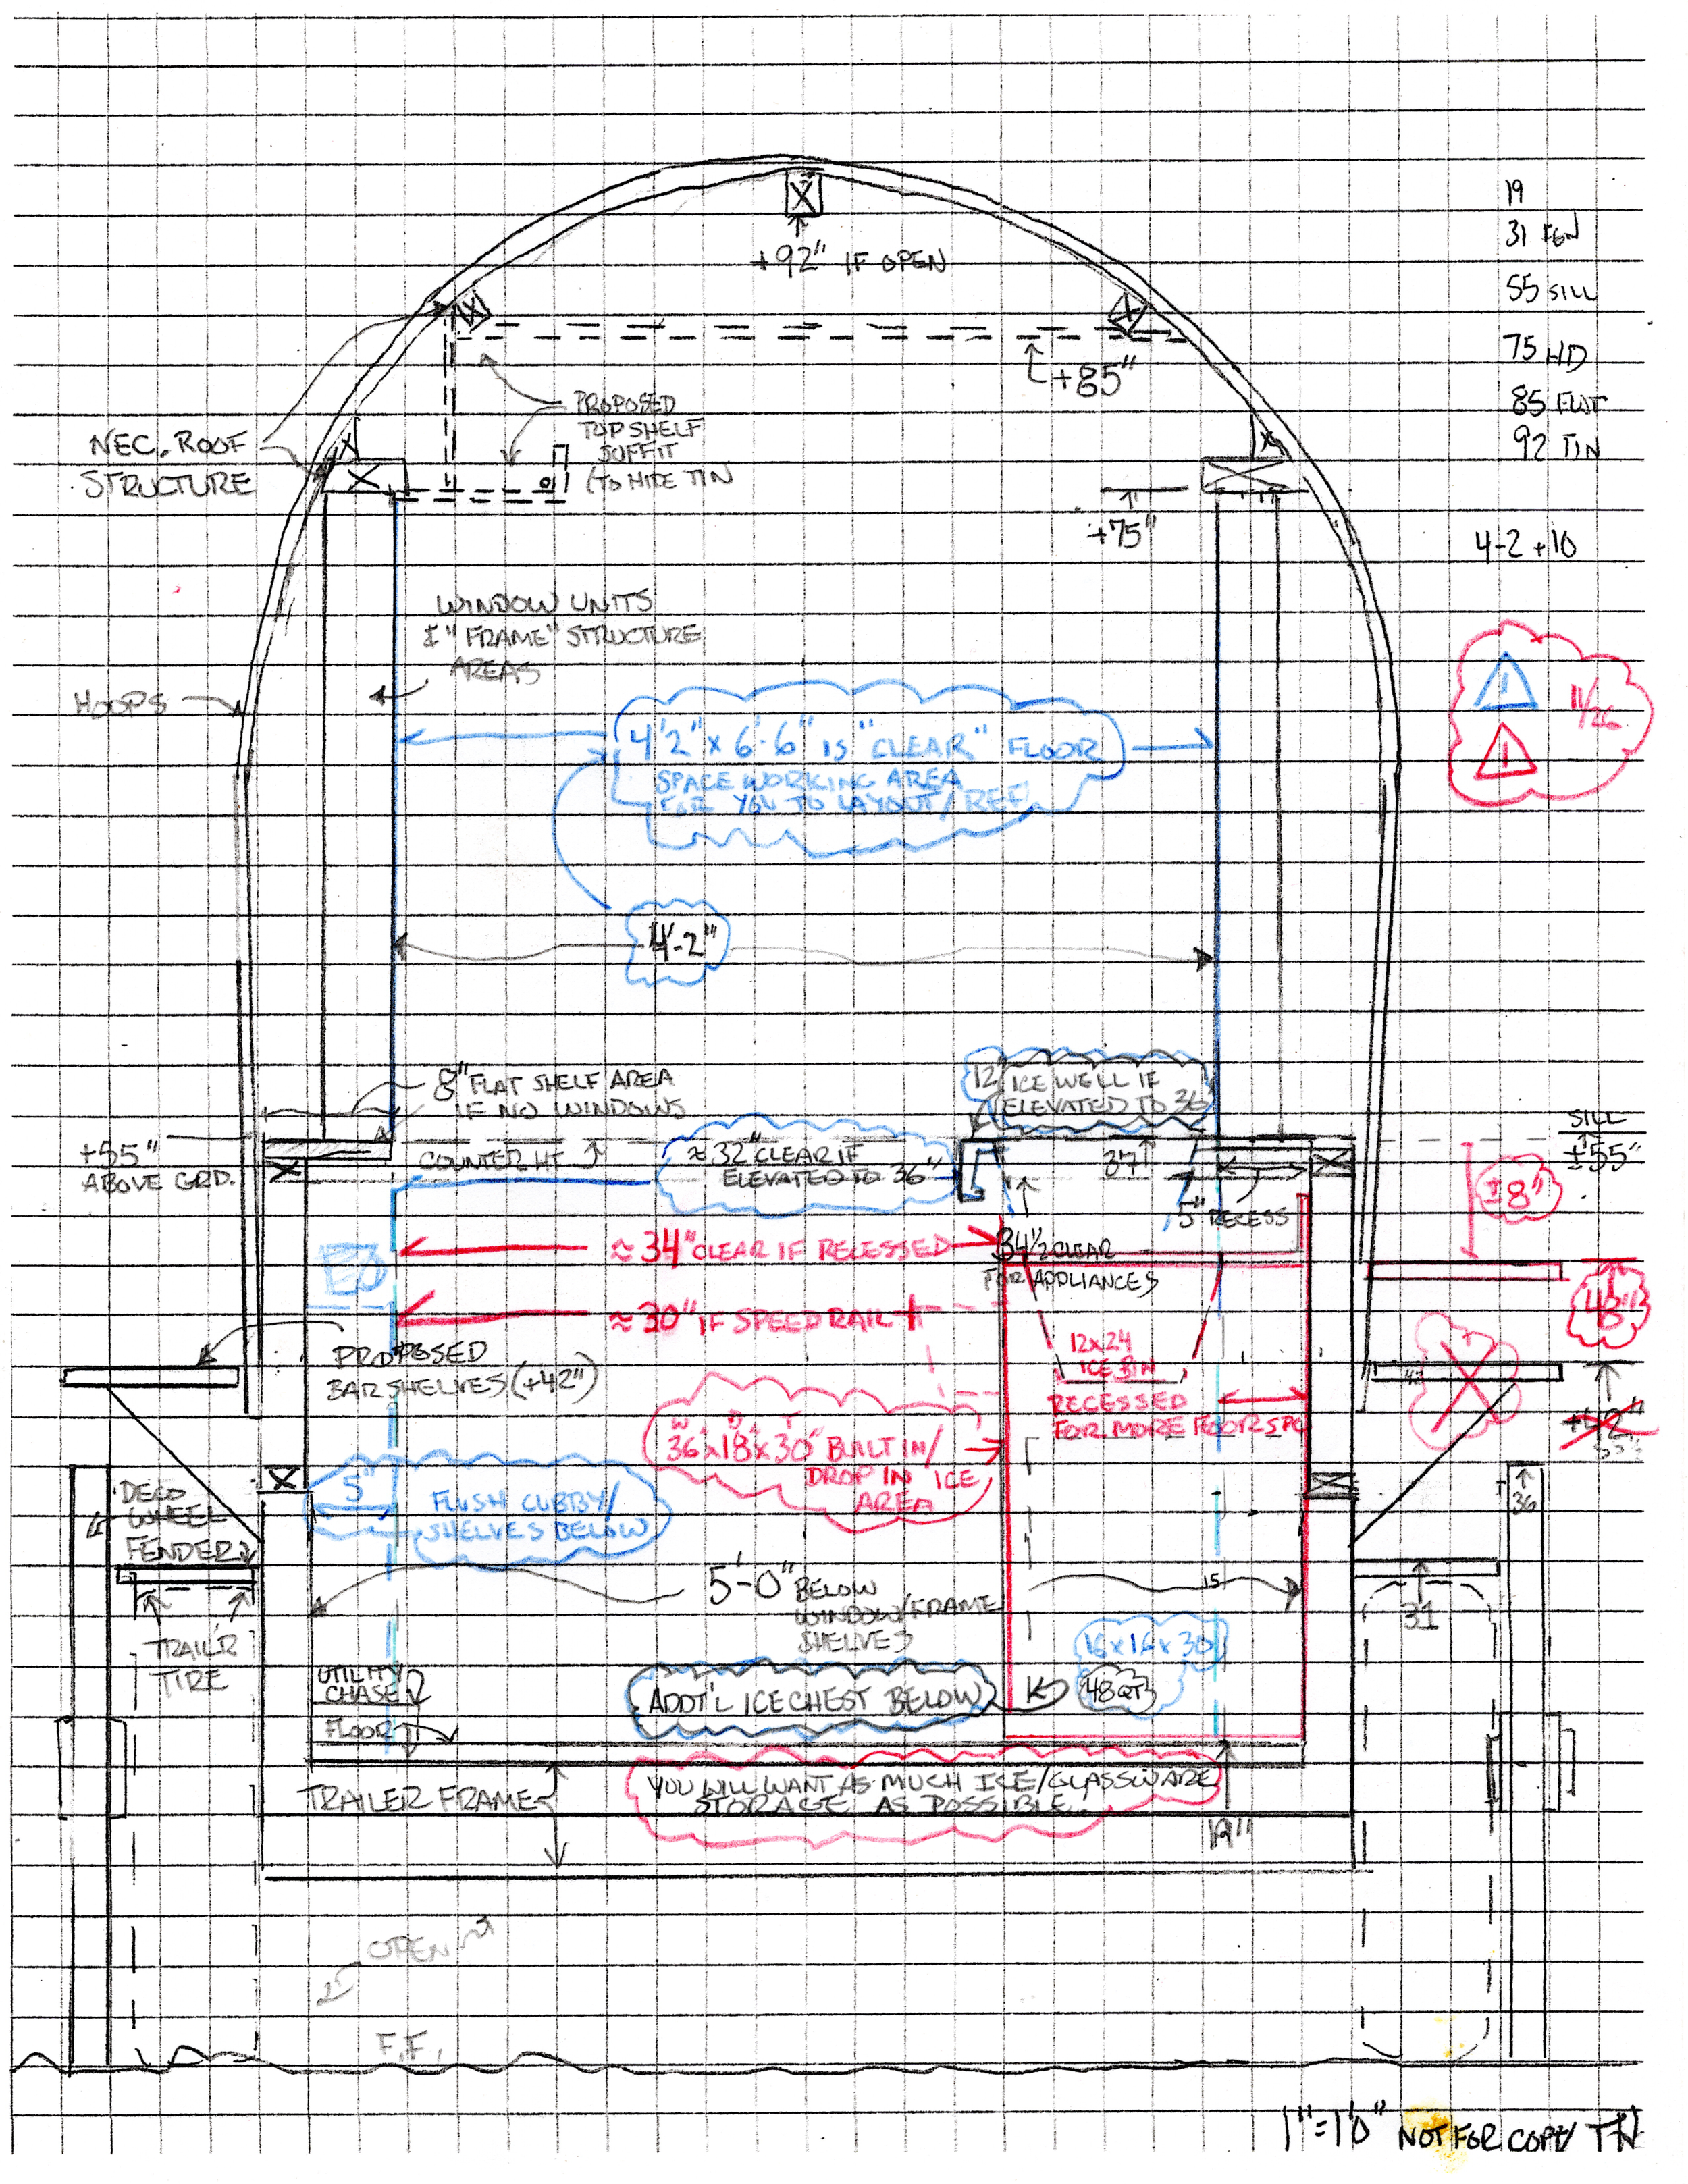 19
31 FGN
55 SILL
75 HD
85 FLAT
92 TIN
4-2 +10
+92" IF OPEN
+85"
PROPOSED
TOP SHELF
SOFFIT
(TO HIDE TIN
NEC. ROOF
STRUCTURE
+75"
WINDOW UNITS
& "FRAME" STRUCTURE
AREAS
HOOPS
4'2" x 6'-6" IS "CLEAR" FLOOR
SPACE WORKING AREA
FOR YOU TO LAYOUT/REF
1
11/26
1
4'-2"
8" FLAT SHELF AREA
IF NO WINDOWS
12 ICE WELL IF
ELEVATED TO 36
+55"
ABOVE GRD.
COUNTER HT
≈ 32" CLEAR IF
ELEVATED TO 36"
37
5" RECESS
SILL
±55"
±8"
≈ 34" CLEAR IF RECESSED
34 1/2 CLEAR
FOR APPLIANCES
≈ 30" IF SPEED RAIL
48"
PROPOSED
BAR SHELVES (+42")
12x24
ICE BIN
RECESSED
FOR MORE FLOOR SPC
+42"
W D T
36"x18"x30" BUILT IN/
DROP IN ICE
AREA
5"
FLUSH CUBBY/
SHELVES BELOW
DECO
WHEEL
FENDER
36
5'-0" BELOW
WINDOW/FRAME
SHELVES
15
31
TRAIL'R
TIRE
16x16x30
48QT
UTILITY
CHASE
ADDT'L ICE CHEST BELOW
FLOOR
TRAILER FRAME
YOU WILL WANT AS MUCH ICE/GLASSWARE
STORAGE AS POSSIBLE...
19"
OPEN
F.F.
1"=1'0" NOT FOR COPY TN